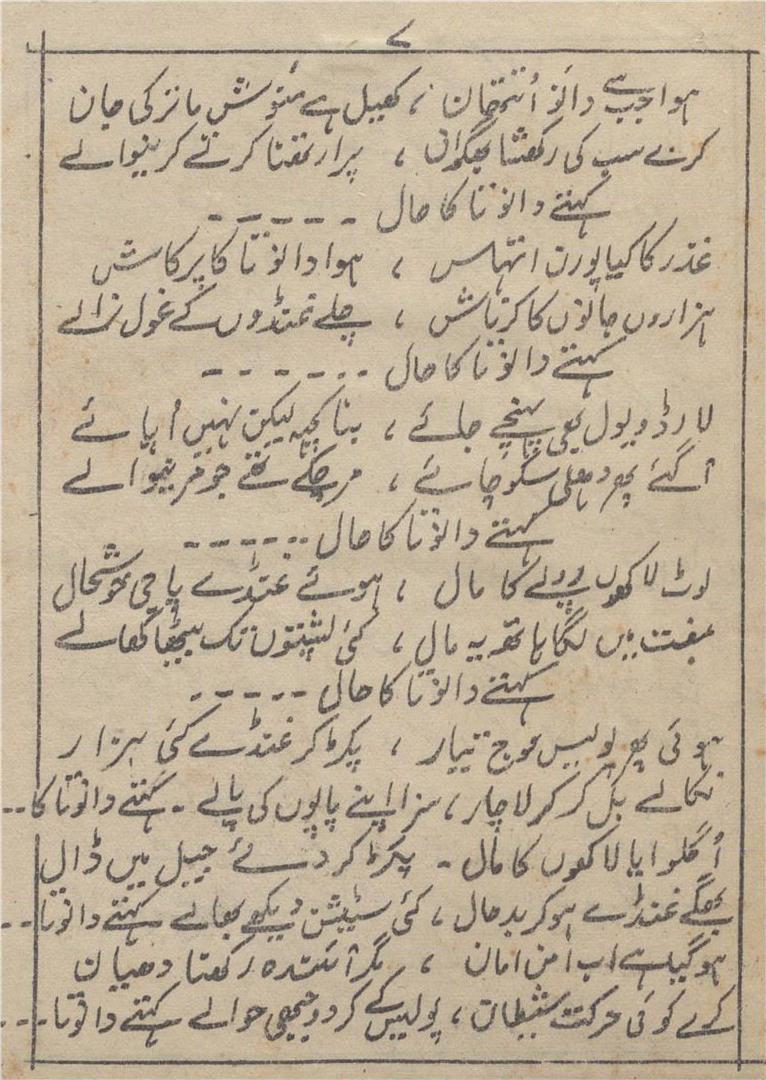 ۷
ہوا جب ہے دانَو اُتتھان ، کھیل ہے منوش مانز کی جان
کرے سب کی رکھشا بھگوان ، پرارتھنا کرتے کرنیوالے
کہتے دانوتا کا حال - - - - -
غدر کا کیا پورن اتہاس ، ہوا دانوتا کا پرکاش
ہزاروں جانوں کا کرناش ، چلے غنڈوں کے غول نرالے
کہتے دانوتا کا حال - - - - - -
لارڈ ویول بھی پہنچے جائے ، بنا کچھ لیکن نہیں اُپائے
آگئے پھر دہلی سکوچائے ، مر چکے تھے جو مرنیوالے
کہتے دانوتا کا حال - - - - - -
لوٹ لاکھوں روپے کا مال ، ہوئے غنڈے پاجی خوشحال
مفت میں لگا ہاتھ یہ مال ، کئی پشتوں تک بیٹھا کھالے
کہتے دانوتا کا حال - - - - -
ہوئی پھر پولیس فوج تیار ، پکڑ کر غنڈے کئی ہزار
نکالے بل کر کر لاچار ، سزا اپنے پاپوں کی پالے - کہتے دانوتا کا - -
اُگلوایا لاکھوں کا مال - پکڑ کر دئے جیل میں ڈال
بھگے غنڈے ہو کر بدحال ، کئی سٹیشن دیکھے بھالے کہتے دانوتا - -
ہوگیا ہے اب امن امان ، مگر آئندہ رکھنا دھیان
کرے کوئی حرکت شیطان ، پولیس کے کر دو جبھی حوالے کہتے دانوتا - - -